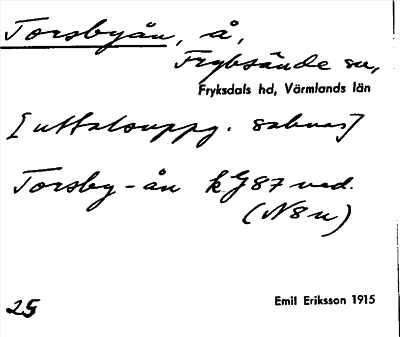 Torsbyån, å,
Fryksände sn,
Fryksdals hd, Värmlands län
[uttalsuppg. saknas]
Torsby-ån kG87 ned.
(N8u)
25
Emil Eriksson 1915